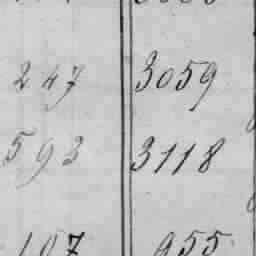 247 3059
593 3118
107 955